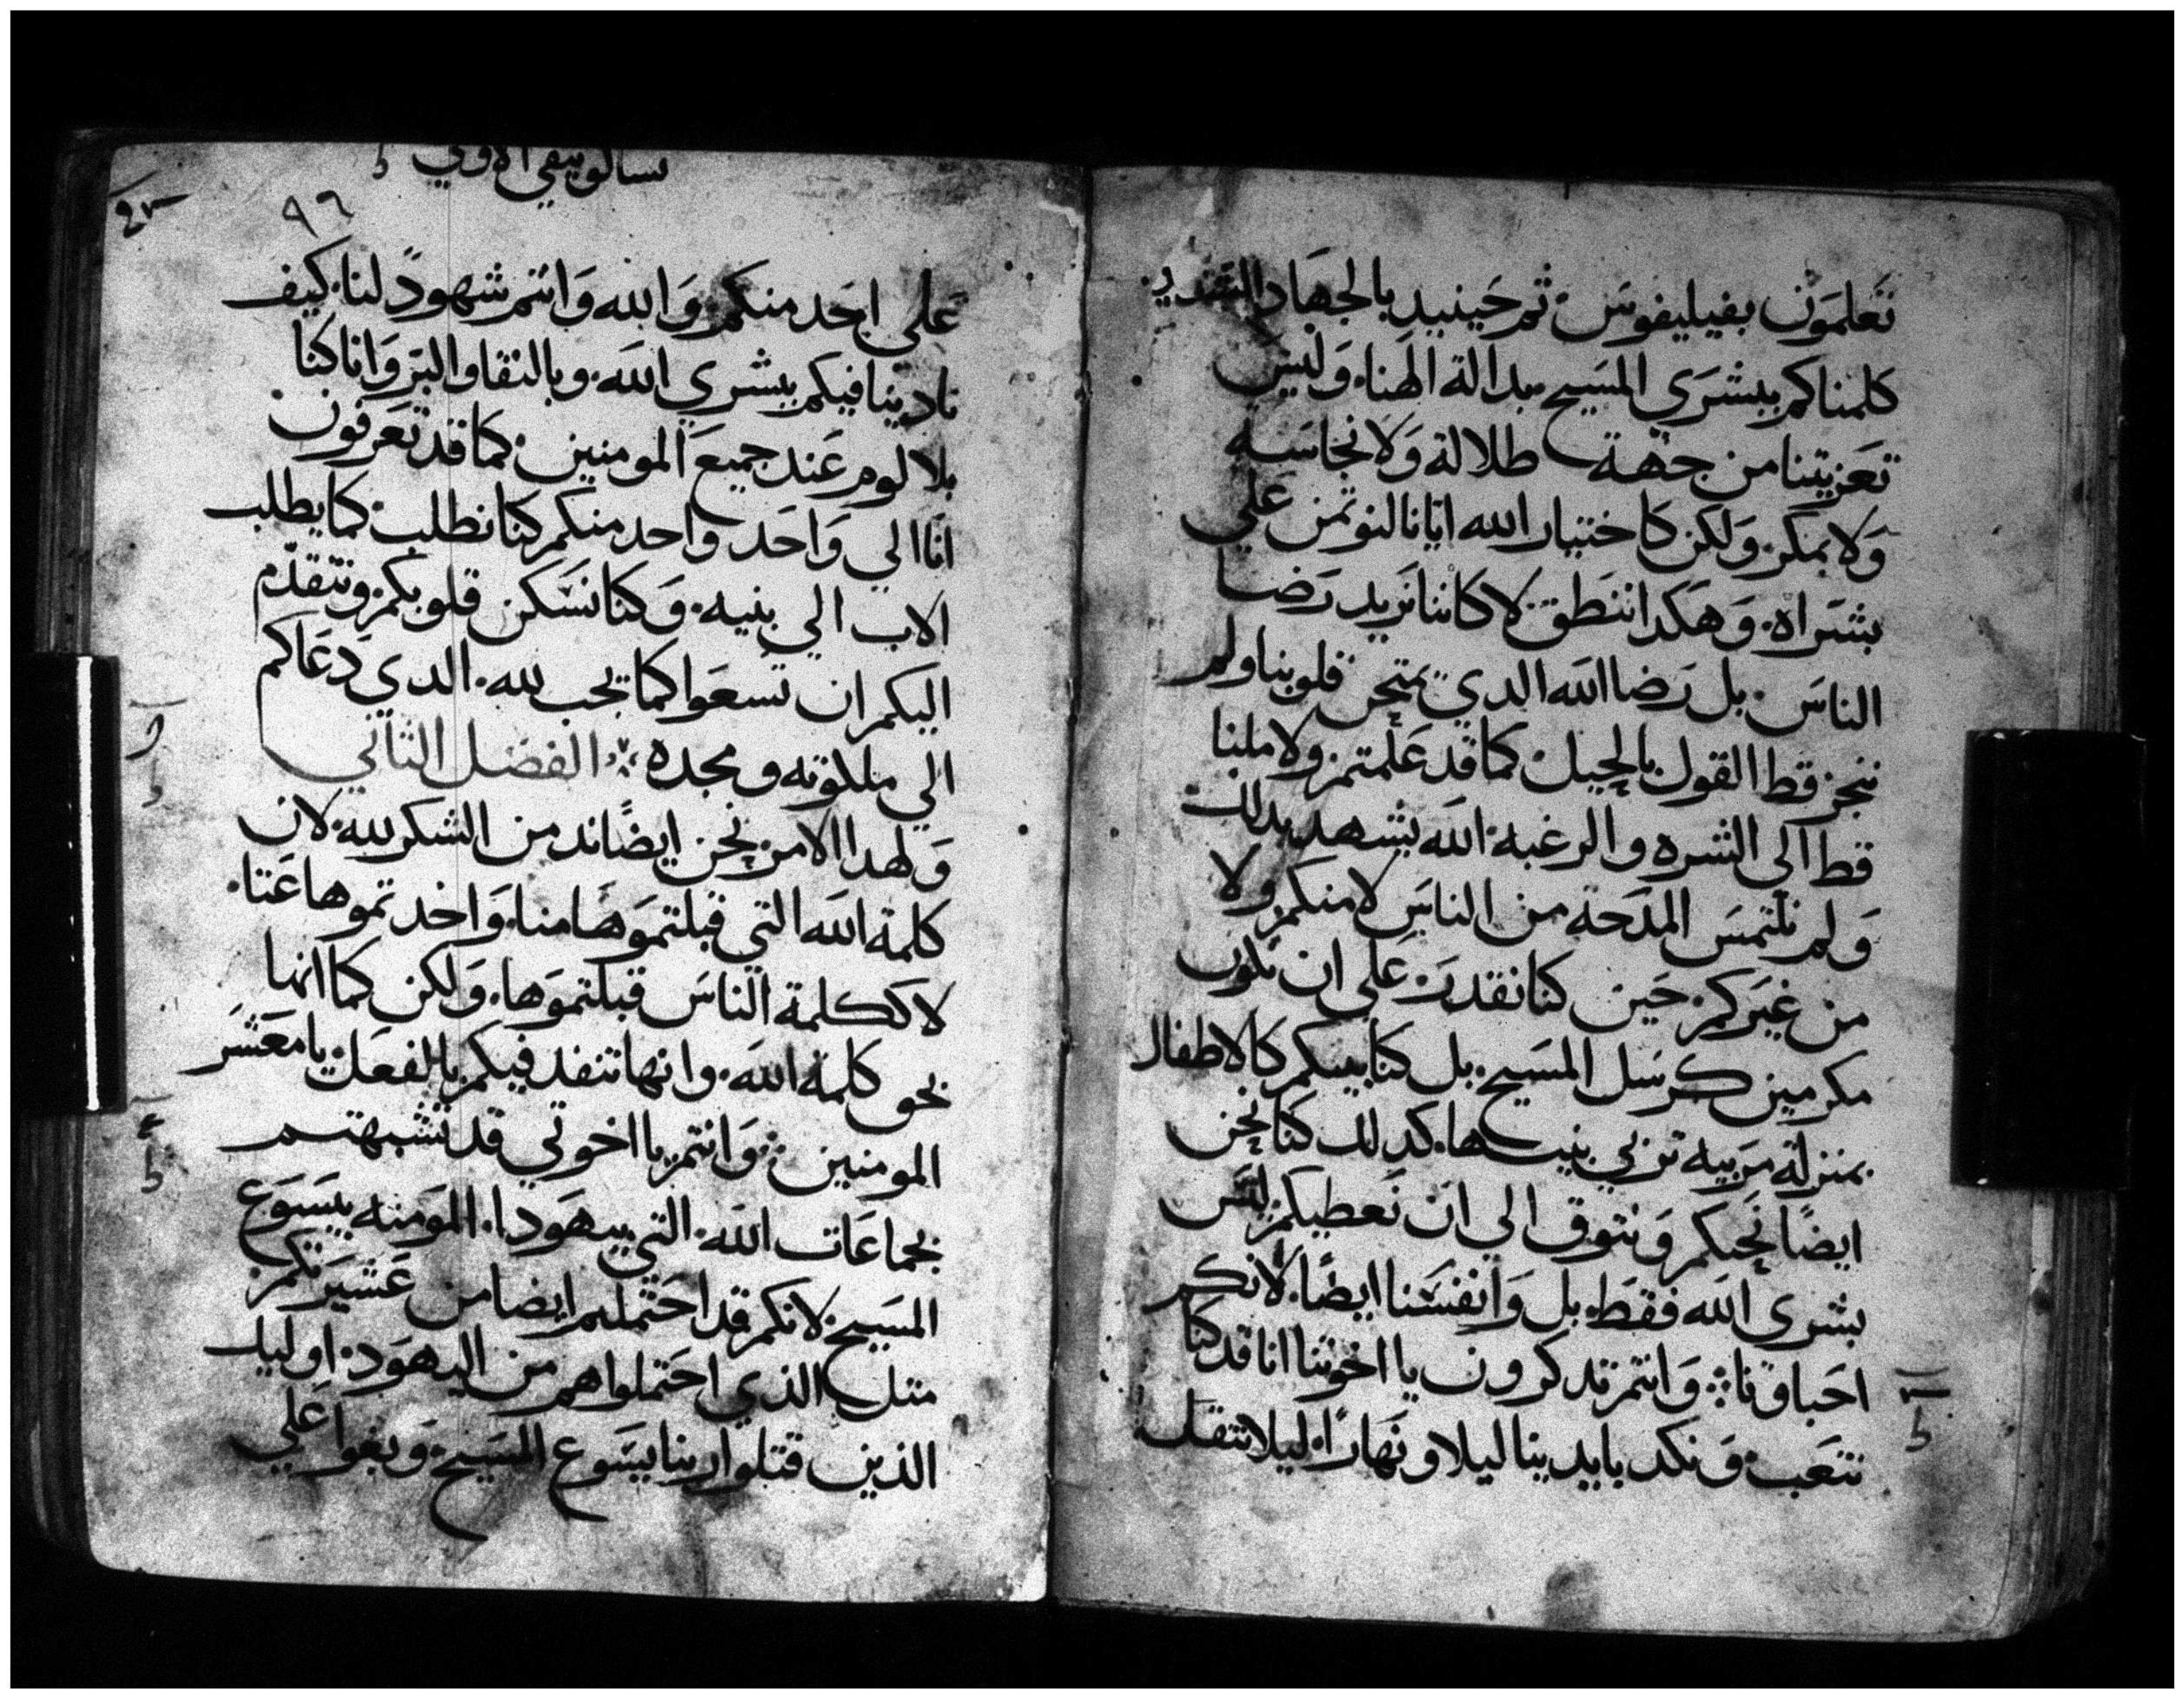 تعلمون بفيليفوس ثم حينيد بالجهاد الشديد
كلمناكم ببشري المسيح بدالة الهنا. وليس
تعزيتنا من جهة طلالة ولا نجاسه
ولا بمكر. ولكن كاختيار الله ايانا لنوتمن علي
بشراه. وهكدا ننطق لا كاننا نريد رضا
الناس. بل رضا الله الدي يمتحن قلوبنا ولم
ننجز قط القول بالحيل كما قد علمتم. ولا ملنا
قط الى الشره والرغبه. الله يشهد بدلك
ولم نلتمس المدحة من الناس لا منكم ولا
من غيركم. حين كنا نقدر على ان نكون
مكرمين كرسل المسيح. بل كنا بينكم كالاطفال
بمنزلة مربيه تربي بنيها. كدلك كنا نحن
ايضا نحبكم ونتوق الي ان نعطيكم ليس
بشرى الله فقط. بل وانفسنا ايضا. لانكم
احباونا: وانتم تدكرون يا اخوتنا انا قد كنا
نتعب ونكد بايدينا ليلا ونهارا. ليلا نتقل
تسالونيقي الاولي
٩٦
علي احد منكم. والله وانتم شهود لنا. كيف
نادينا فيكم ببشري الله. وبالنقا والبر وانا كنا
بلا لوم عند جميع المومنين. كما قد تعرفون
انا الي واحد واحد منكم كنا نطلب. كما يطلب
الاب الي بنيه. وكنا نسكن قلوبكم ونتقدم
اليكم ان تسعوا كما يجب لله. الدي دعاكم
الي ملكوته ومجده: الفصل الثاني
ولهدا الامر نحن ايضا ندمن الشكر لله. لان
كلمة الله التي قبلتموها منا. واخدتموها عنا.
لا ككلمة الناس قبلتموها. ولكن كما انها
بحق كلمة الله. وانها تنفد فيكم بالفعل يا معشر
المومنين: وانتم يا اخوتي قد تشبهتم
بجماعات الله التي بيهودا. المومنه بيسوع
المسيح. لانكم قد احتملتم ايضا من عشيرتكم
متل الذي احتملوا هم من اليهود. اوليك
الذين قتلوا ربنا يسوع المسيح. وبغوا علي